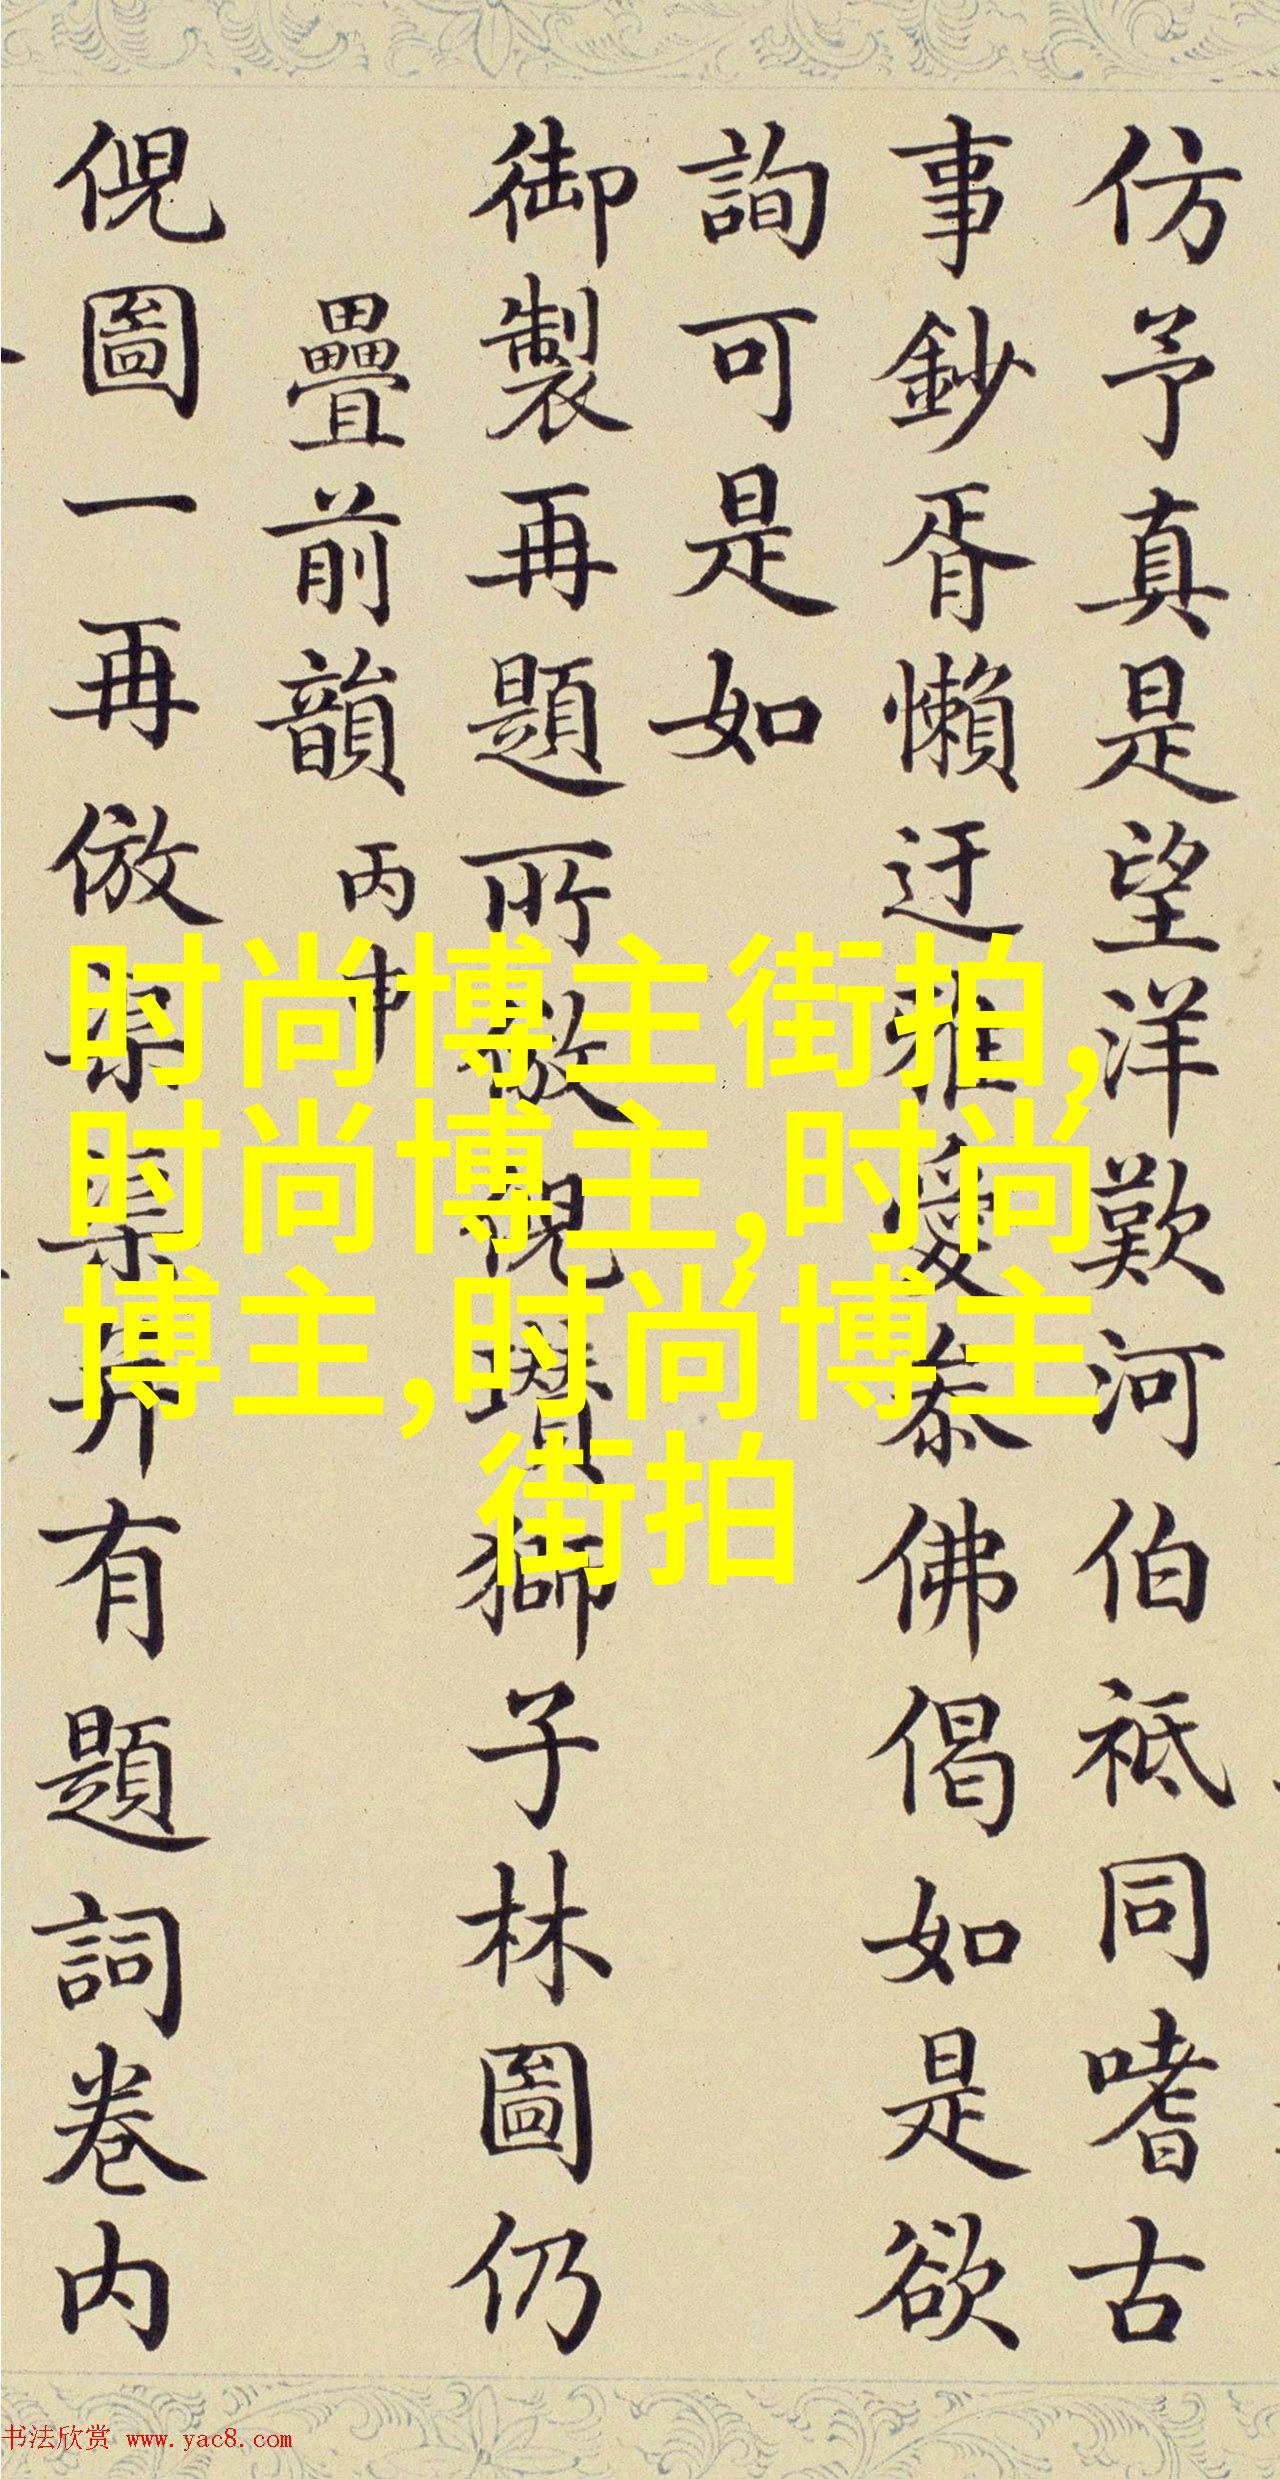 仿予真是望洋歎河伯祗同嗜古
事鈔胥懶迂雅愛叅佛偈如是欲
詢可是如
御製再題所倣倪瓚獅子林圖仍
疊前韻 丙申
倪圖一再倣有題詞卷内
时尚博主街拍,
时尚博主,时尚
博主,时尚博主
街拍
书法欣赏 www.yac8.com